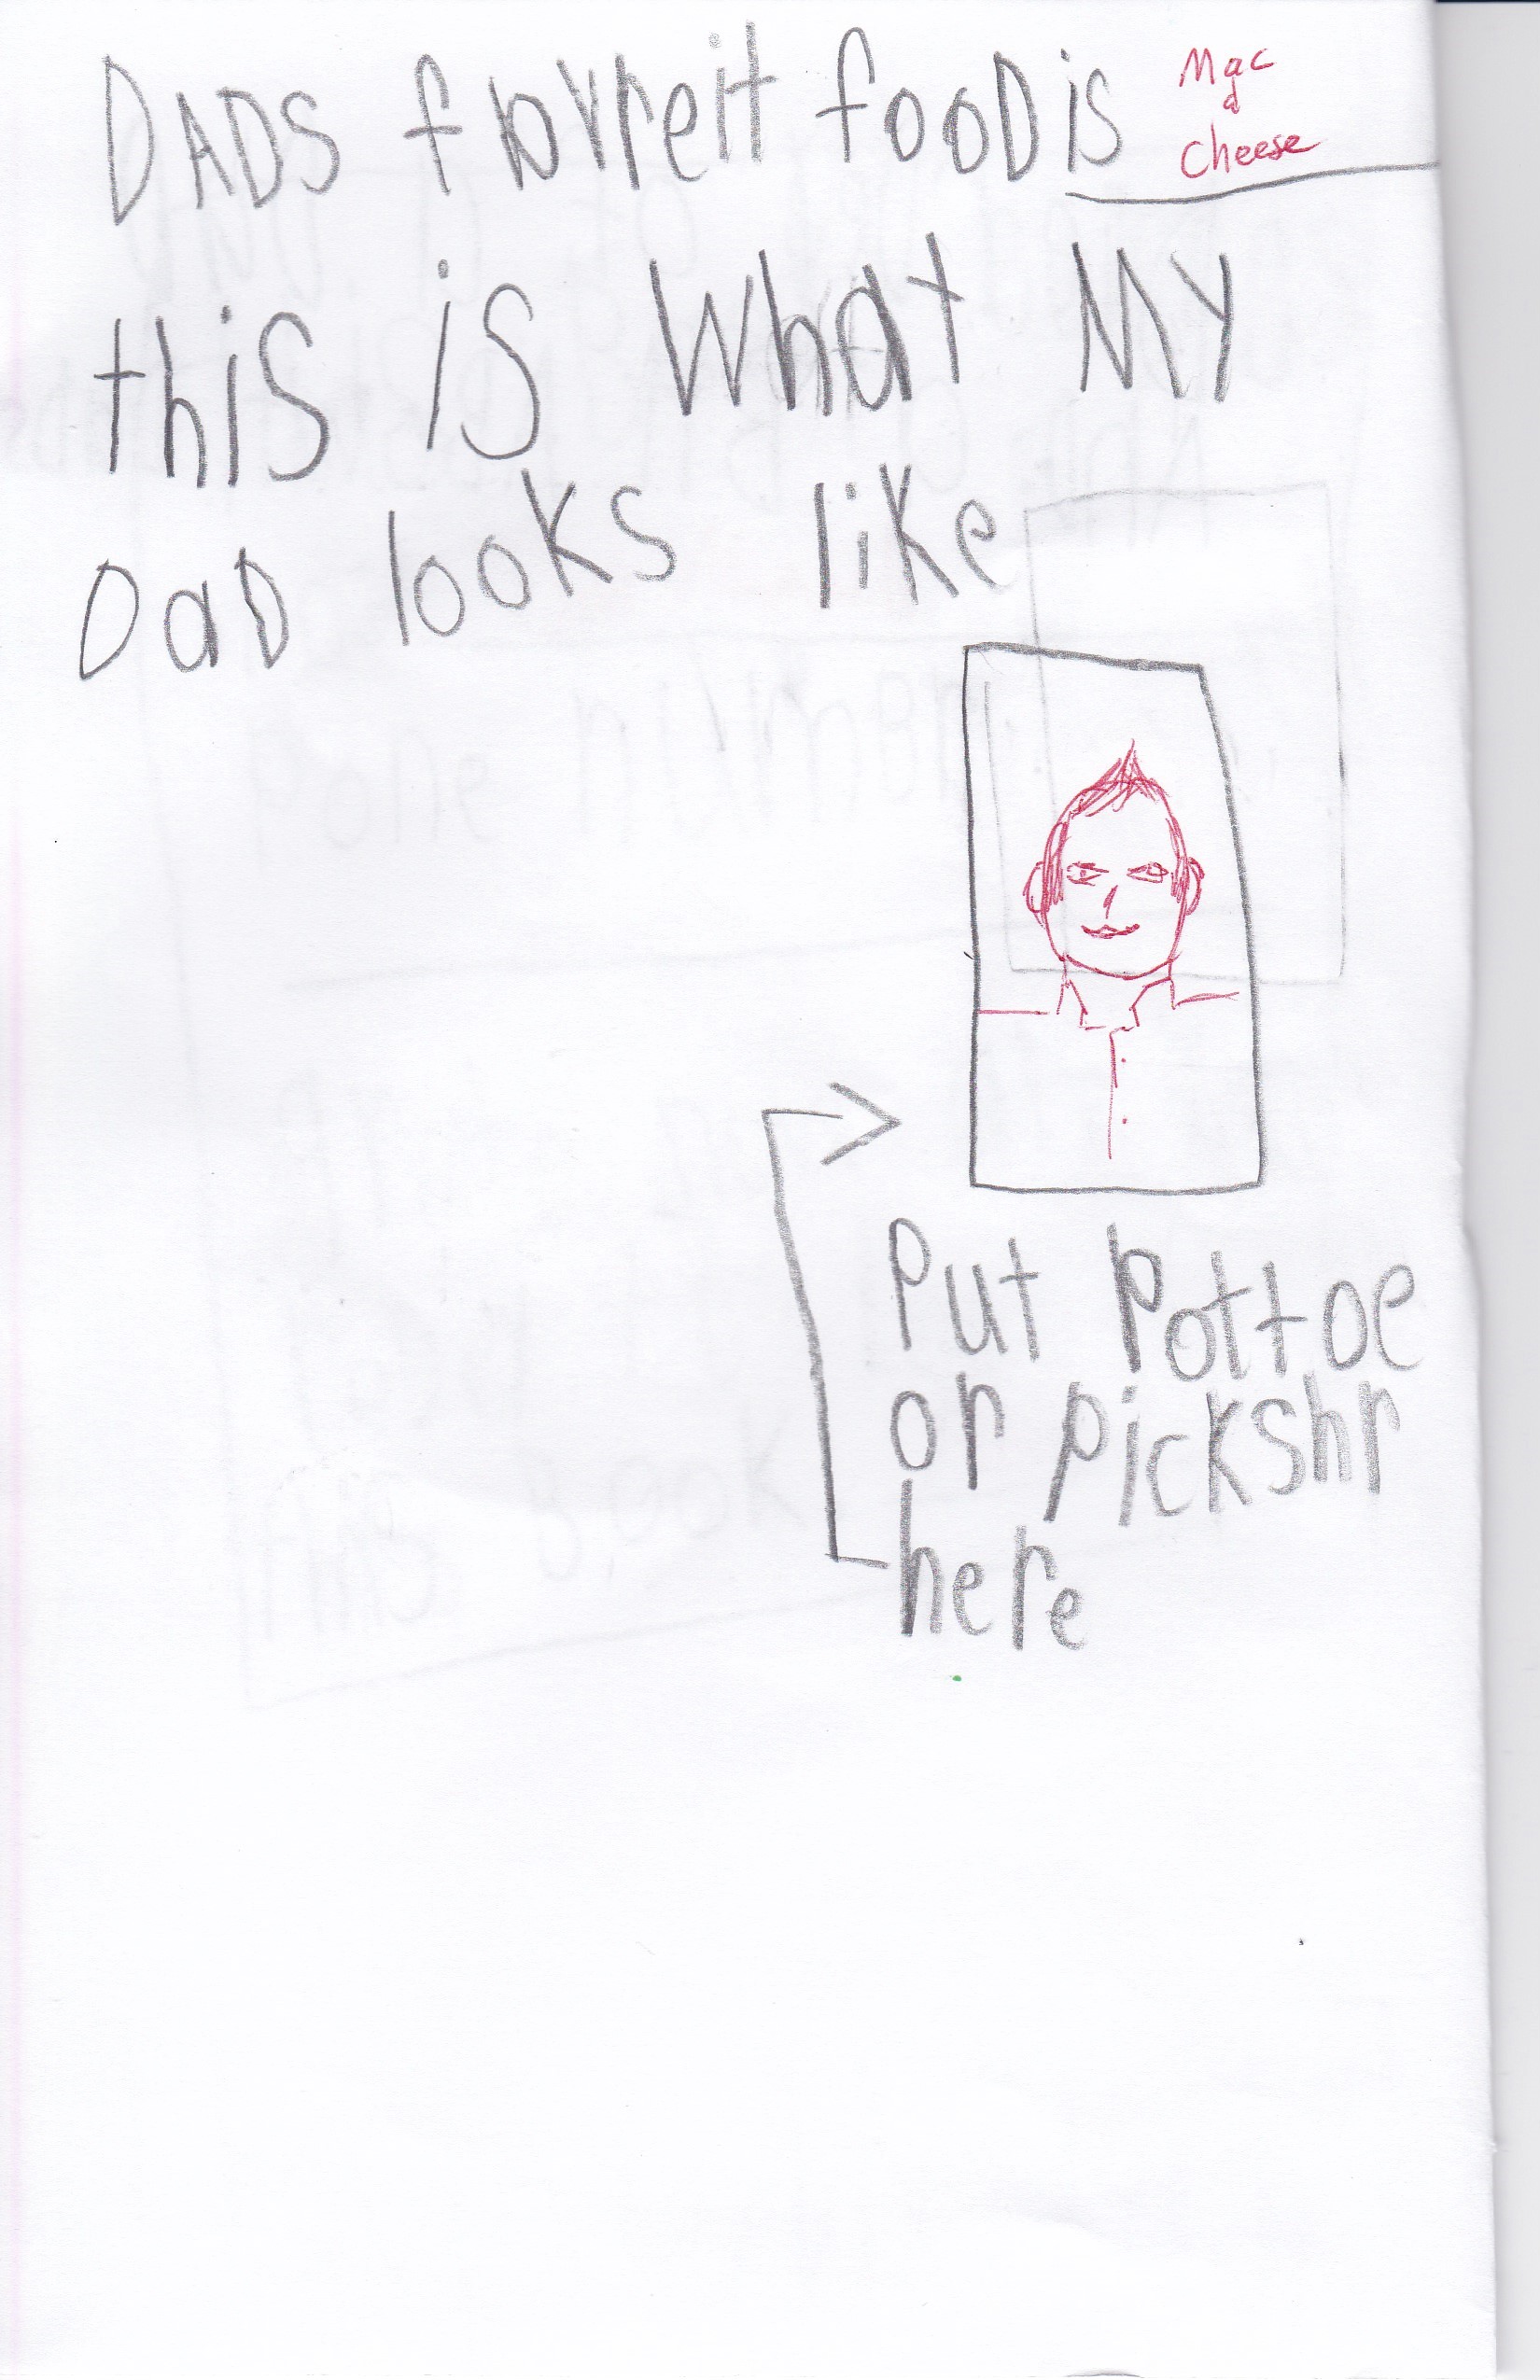 DADS favreit fooD is Mac
&
cheese
this is what MY
DaD looks like
Put Pottoe
or pickshr
here